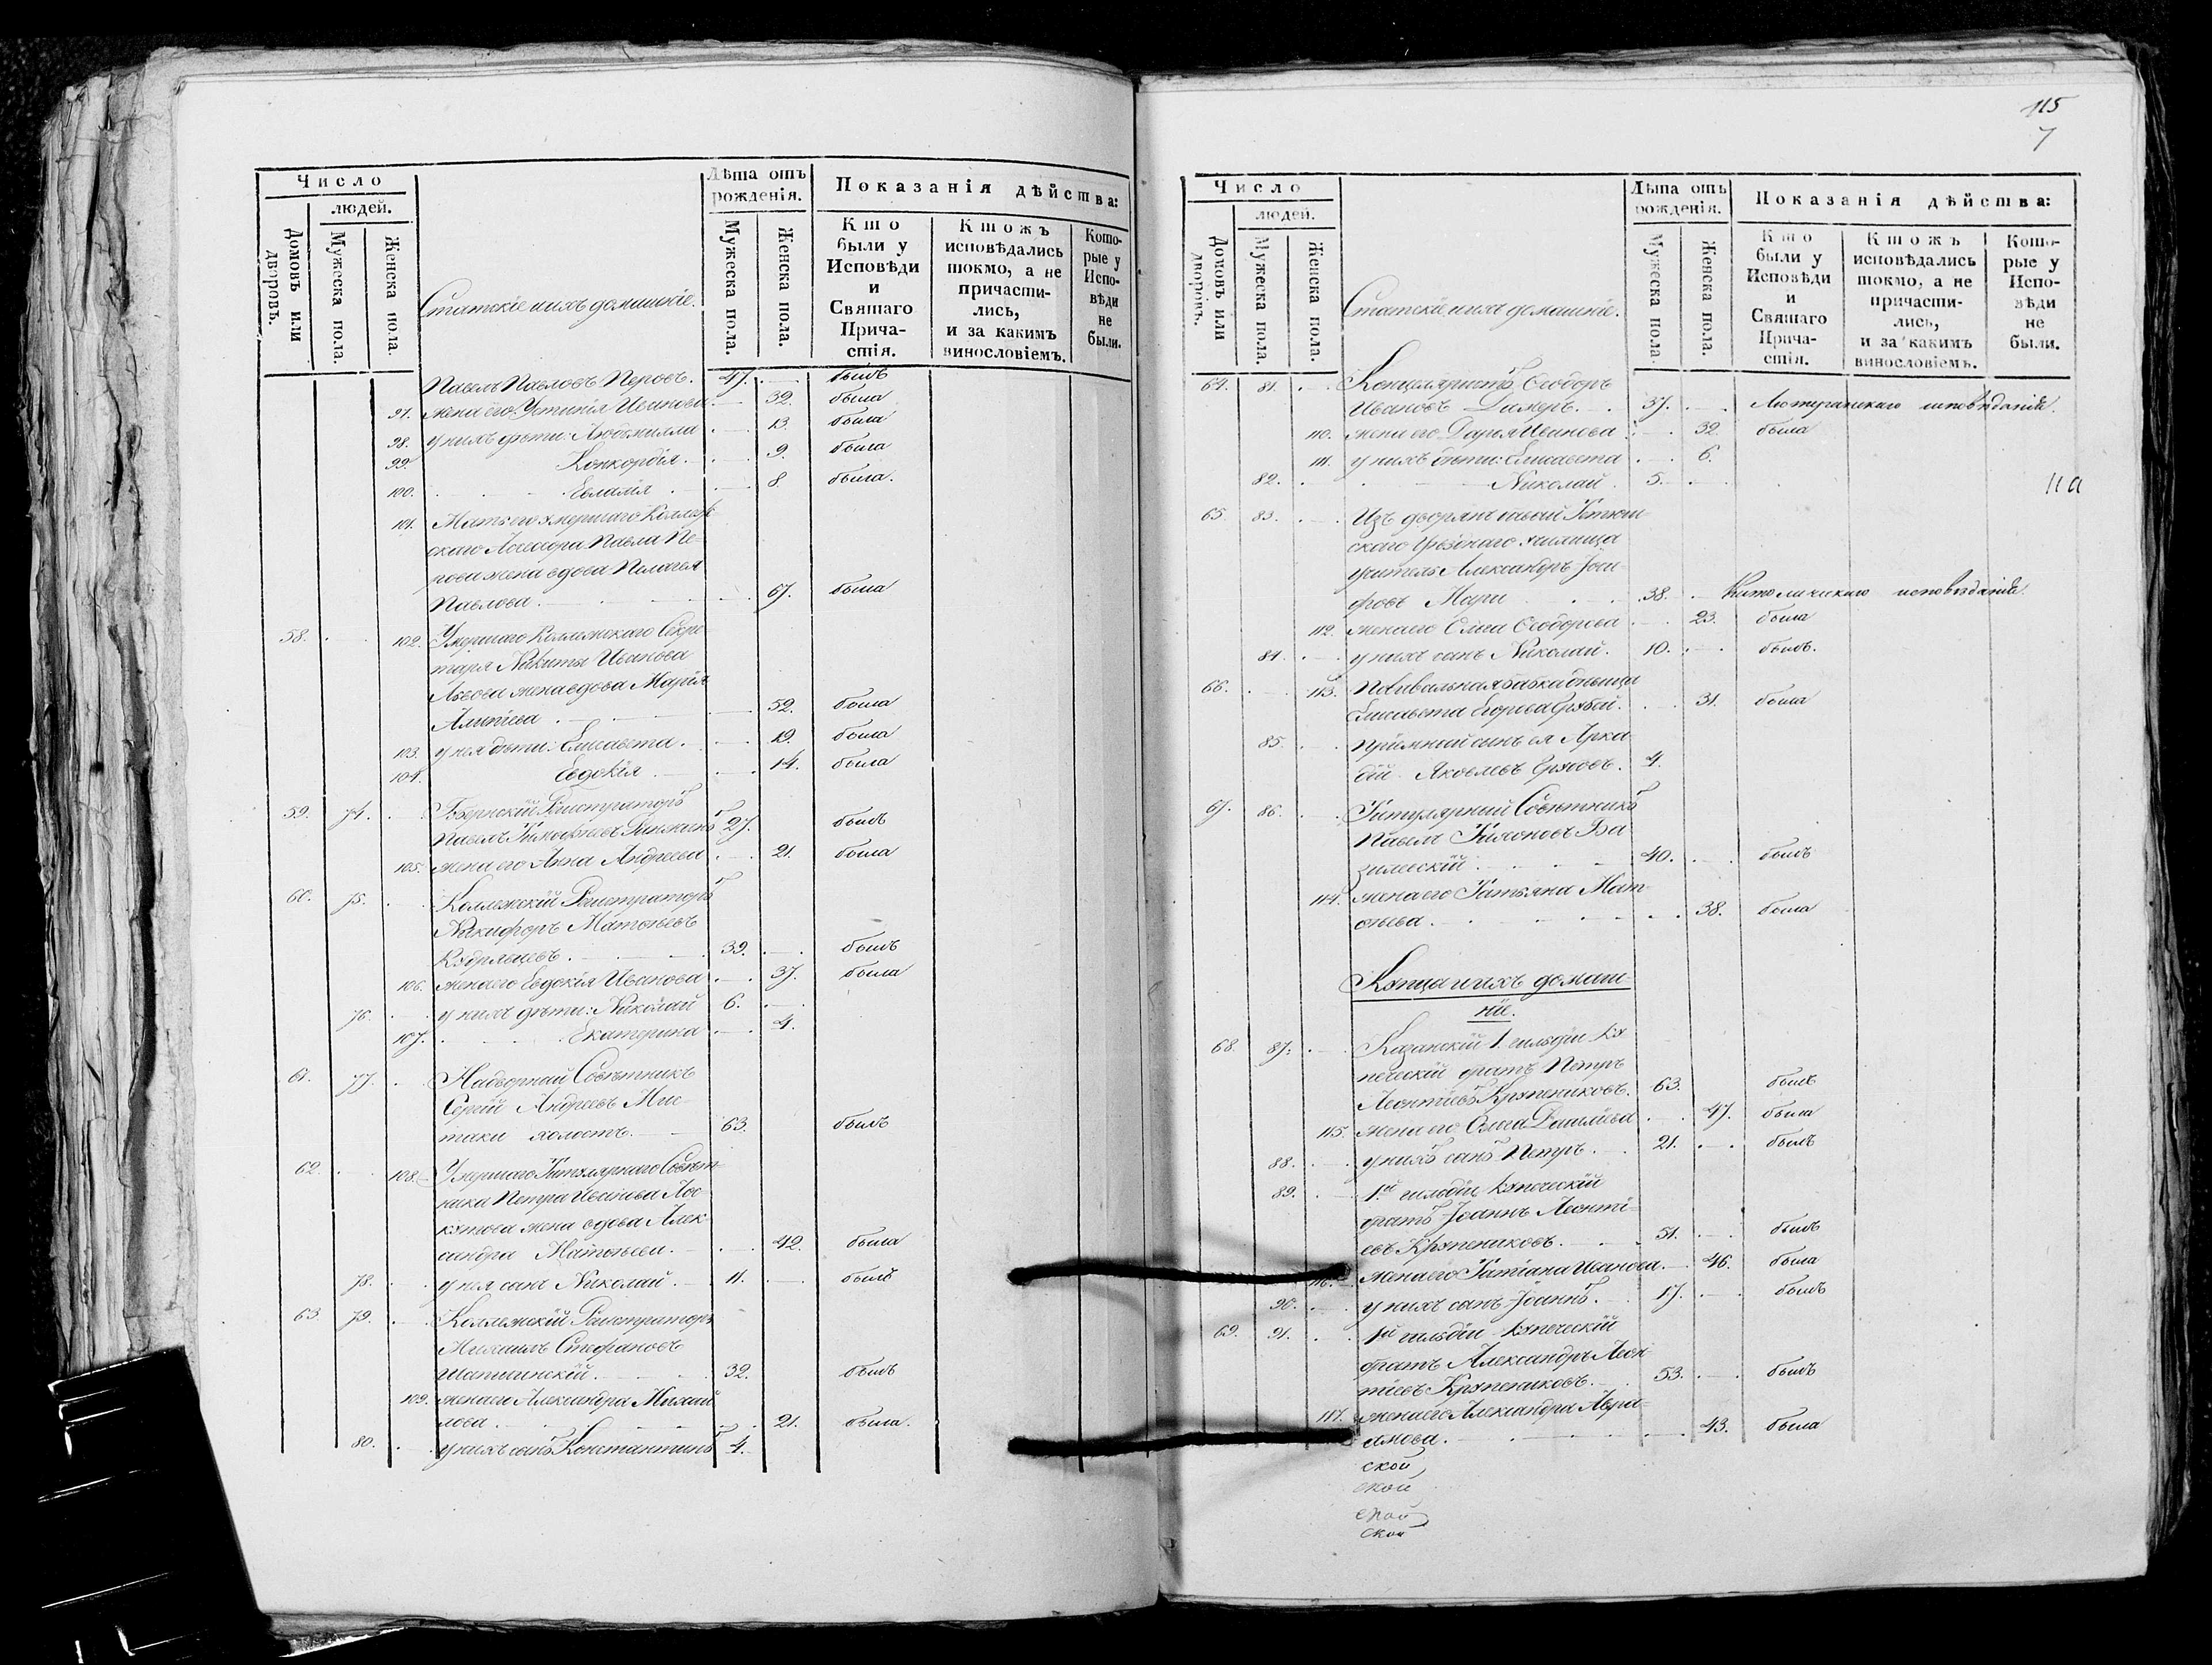 Число
людей.
Домовъ или дворовъ.
Мужеска пола.
Женска пола.
Статскіе и ихъ домашніе.
Лѣта отъ рожденія.
Мужеска пола.
Женска пола.
Показанія дѣйства:
Кто были у Исповѣди и Святаго Причастія.
Ктожъ исповѣдались токмо, а не причастились, и за какимъ винословіемъ.
Которые у Исповѣди не были.
Павелъ Павловъ Перовъ. 47. былъ
жена его Устинія Иванова 32. была
98. у нихъ дѣти: Людмилла 13. была
99. Конкордія. 9. была
100. Евлалія 8. была.
101. Мать его умершаго Коллеж-
скаго Ассесора Павла Пе-
рова жена вдова Пелагея
Павлова. 67. была
58. 102. Умершаго Коллежскаго Секре-
таря Никиты Иванова
Львова жена вдова Марія
52. была
103. у нея дѣти: Елисавета. 19. была
104. Евдокія. 14. была
59. 74. Губернскій Регистраторъ
Павелъ Тимофеевъ 27. былъ
105. жена его Анна Андреева 21. была
60. 75. Коллежскій Регистраторъ
Никифоръ Матвѣевъ
Кудрявцевъ. 39. былъ
106. жена его Евдокія Иванова 37. была
76. у нихъ дѣти: Николай 6.
107. Екатерина 4.
61. 77. Надворный Совѣтникъ
Сергій Андреевъ Мис-
таки холостъ. 63. былъ
62. 108. Умершаго Титулярнаго Совѣт-
ника Петра Иванова Лос-
кутова жена вдова Алек-
сандра Матвѣева. 42. была
78. у нея сынъ Николай. 11. былъ
63. 79. Коллежскій Регистраторъ
Михаилъ Стефановъ
Шатшинскій. 32. былъ
109. жена его Александра Михай-
лова. 21. была.
80. у нихъ сынъ Константинъ 4.
115
7
Число
людей.
Домовъ или дворовъ.
Мужеска пола.
Женска пола.
Статскіе и ихъ домашніе.
Лѣта отъ рожденія.
Мужеска пола.
Женска пола.
Показанія дѣйства:
Кто были у Исповѣди и Святаго Причастія.
Ктожъ исповѣдались токмо, а не причастились, и за какимъ винословіемъ.
Которые у Исповѣди не были.
64. 81. Канцеляристъ Ѳеодоръ
Ивановъ Димеръ. 37. Лютеранскаго исповѣданія.
110. жена его Дарья Иванова 32. была
111. у нихъ дѣти: Елисавета 6.
82. Николай. 5.
65. 83. Изъ дворянъ
скаго Уѣзднаго училища
учитель Александръ Іоси-
фовъ Мари 38. Католическаго исповѣданія.
112. жена его Ольга Ѳеодорова 23. была
84. у нихъ сынъ Николай. 10. былъ.
66. 113. Повивальная бабка дѣвица
Елисавета Егорова 31. была
85. Пріемный сынъ ея Арка-
дій Яковлевъ 4.
67. 86. Титулярный Совѣтникъ
Павелъ Тихоновъ Ва-
зилевскій. 40. былъ
114. жена его Татьяна Мат-
вѣева. 38. была
Купцы и ихъ домаш-
ніе.
68. 87. Казанскій 1. гильдіи ку-
печескій братъ Петръ
Леонтіевъ Крупениковъ. 63. былъ
115. жена его Ольга Данилова 47. была
88. у нихъ сынъ Петръ. 21. былъ
89. 1й гильдіи купеческій
братъ Іоаннъ Леонті-
евъ Крупениковъ. 51. былъ
116. жена его Татіана Иванова. 46. была
90. у нихъ сынъ Іоаннъ. 17. былъ
69. 91. 1й гильдіи купеческій
братъ Александръ Леон-
тіевъ Крупениковъ. 53. былъ
117. жена его Александра Авра-
амова. 43. была
ской
ской
ской
ской